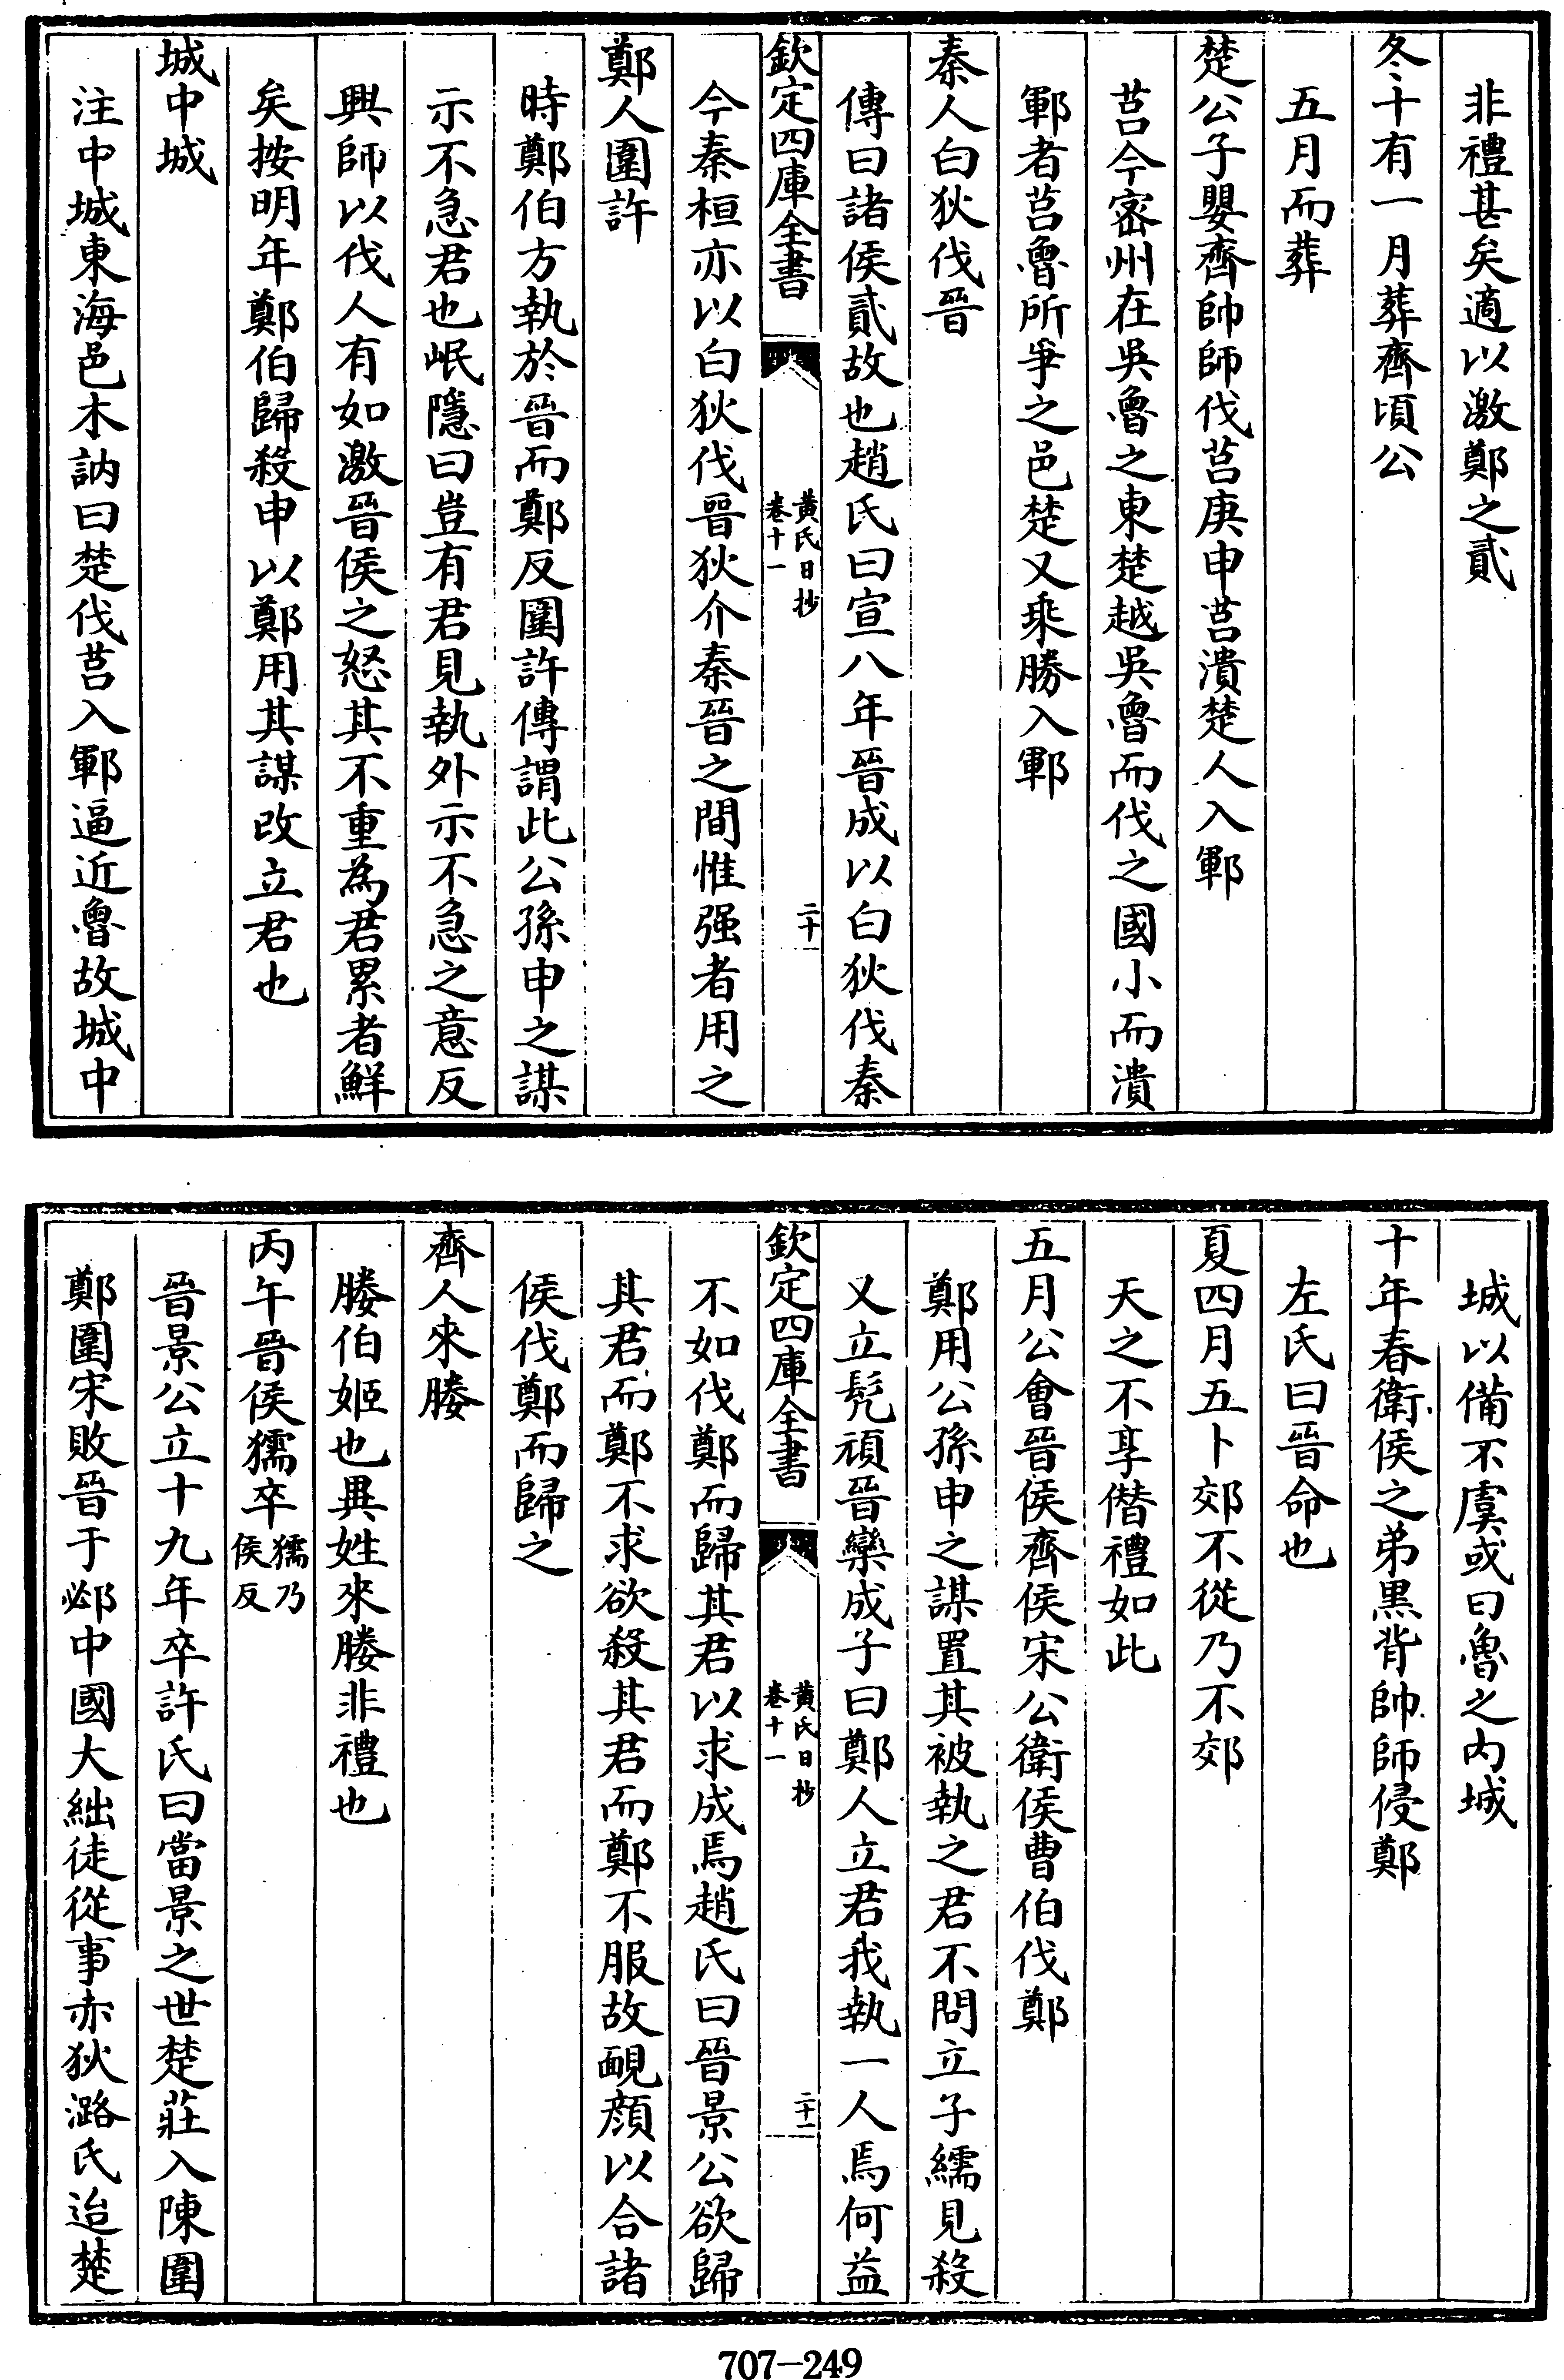 非禮甚矣適以激鄭之貳
冬十有一月葬齊頃公
五月而葬
楚公子嬰齊帥師伐莒庚申莒潰楚人入鄆
莒今宻州在吳魯之東楚越吳魯而伐之國小而潰
鄆者莒魯所爭之邑楚又乘勝入鄆
秦人白狄伐晉
傳曰諸侯貳故也趙氏曰宣八年晉成以白狄伐秦
欽定四庫全書
黄氏日抄
卷十一
二十
今秦桓亦以白狄伐晉狄介秦晉之間惟强者用之
鄭人圍許
時鄭伯方執於晉而鄭反圍許傳謂此公孫申之謀
示不急君也岷隱曰豈有君見執外示不急之意反
興師以伐人有如激晉侯之怒其不重為君累者鮮
矣按明年鄭伯歸殺申以鄭用其謀改立君也
城中城
注中城東海邑木訥曰楚伐莒入鄆逼近魯故城中
城以備不虞或曰魯之内城
十年春衛侯之弟黑背帥師侵鄭
左氏曰晉命也
夏四月五卜郊不從乃不郊
天之不享僭禮如此
五月公會晉侯齊侯宋公衛侯曹伯伐鄭
鄭用公孫申之謀置其被執之君不問立子繻見殺
又立髠頑晉欒成子曰鄭人立君我執一人焉何益
欽定四庫全書
黄氏日抄
卷十一
二十一
不如伐鄭而歸其君以求成焉趙氏曰晉景公欲歸
其君而鄭不求欲殺其君而鄭不服故靦顔以合諸
侯伐鄭而歸之
齊人來媵
媵伯姬也異姓來媵非禮也
丙午晉侯獳卒獳乃侯反
晉景公立十九年卒許氏曰當景之世楚莊入陳圍
鄭圍宋敗晉于邲中國大絀徒從事赤狄潞氏迨楚
707-249